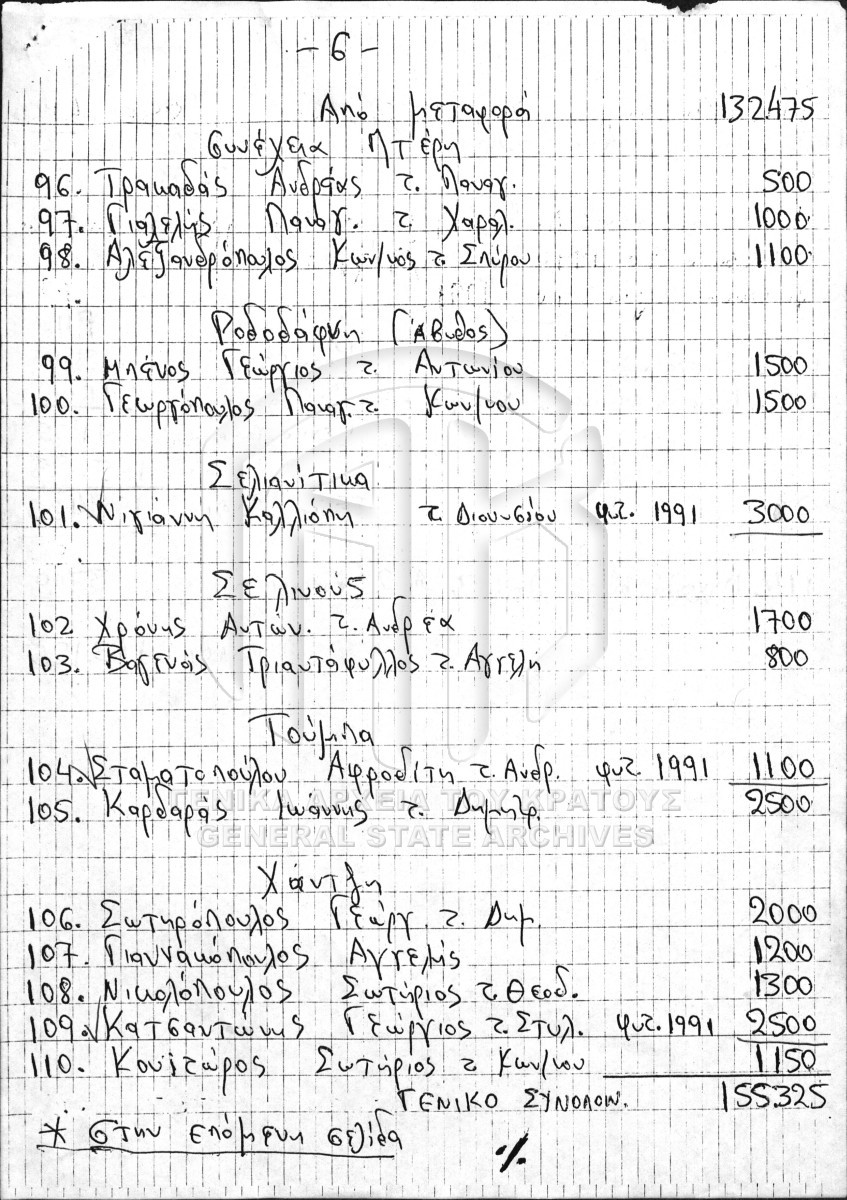 - 6 -
Από μεταφορά 132475
συνέχεια Πτέρη
96. Τρακαδάς Ανδρέας τ. Παναγ. 500
97. Γιαλελής Παναγ. τ. Χαραλ. 1000
98. Αλεξανδρόπουλος Κων/νος τ. Σπύρου 1100
Ροδοδάφνη (Άβυθος)
99. Μπένος Γεώργιος τ. Αντωνίου 1500
100. Γεωργόπουλος Παναγ. τ. Κων/νου 1500
Σελιανίτικα
101. √ Νιγιάννη Καλλιόπη τ. Διονυσίου φυτ. 1991 3000
Σελινούς
102 Χρόνης Αντών. τ. Ανδρέα 1700
103. Βαγενάς Τριαντάφυλλος τ. Αγγελή 800
Τούμπα
104. √ Σταματοπούλου Αφροδίτη τ. Ανδρ. φυτ. 1991 1100
105. Καρδαράς Ιωάννης τ. Δημητρ. 2500
ΓΕΝΙΚΑ ΑΡΧΕΙΑ ΤΟΥ ΚΡΑΤΟΥΣ
GENERAL STATE ARCHIVES
Χάντζη
106. Σωτηρόπουλος Γεώργ. τ. Δημ. 2000
107. Γιαννακόπουλος Αγγελής 1200
108. Νικολόπουλος Σωτήριος τ. Θεοδ. 1300
109. √ Κατσαντώνης Γεώργιος τ. Στυλ. φυτ. 1991 2500
110. Σωτήριος τ. Κων/νου 1150
ΓΕΝΙΚΟ ΣΥΝΟΛΟΝ. 155325
* στην επόμενη σελίδα
./.